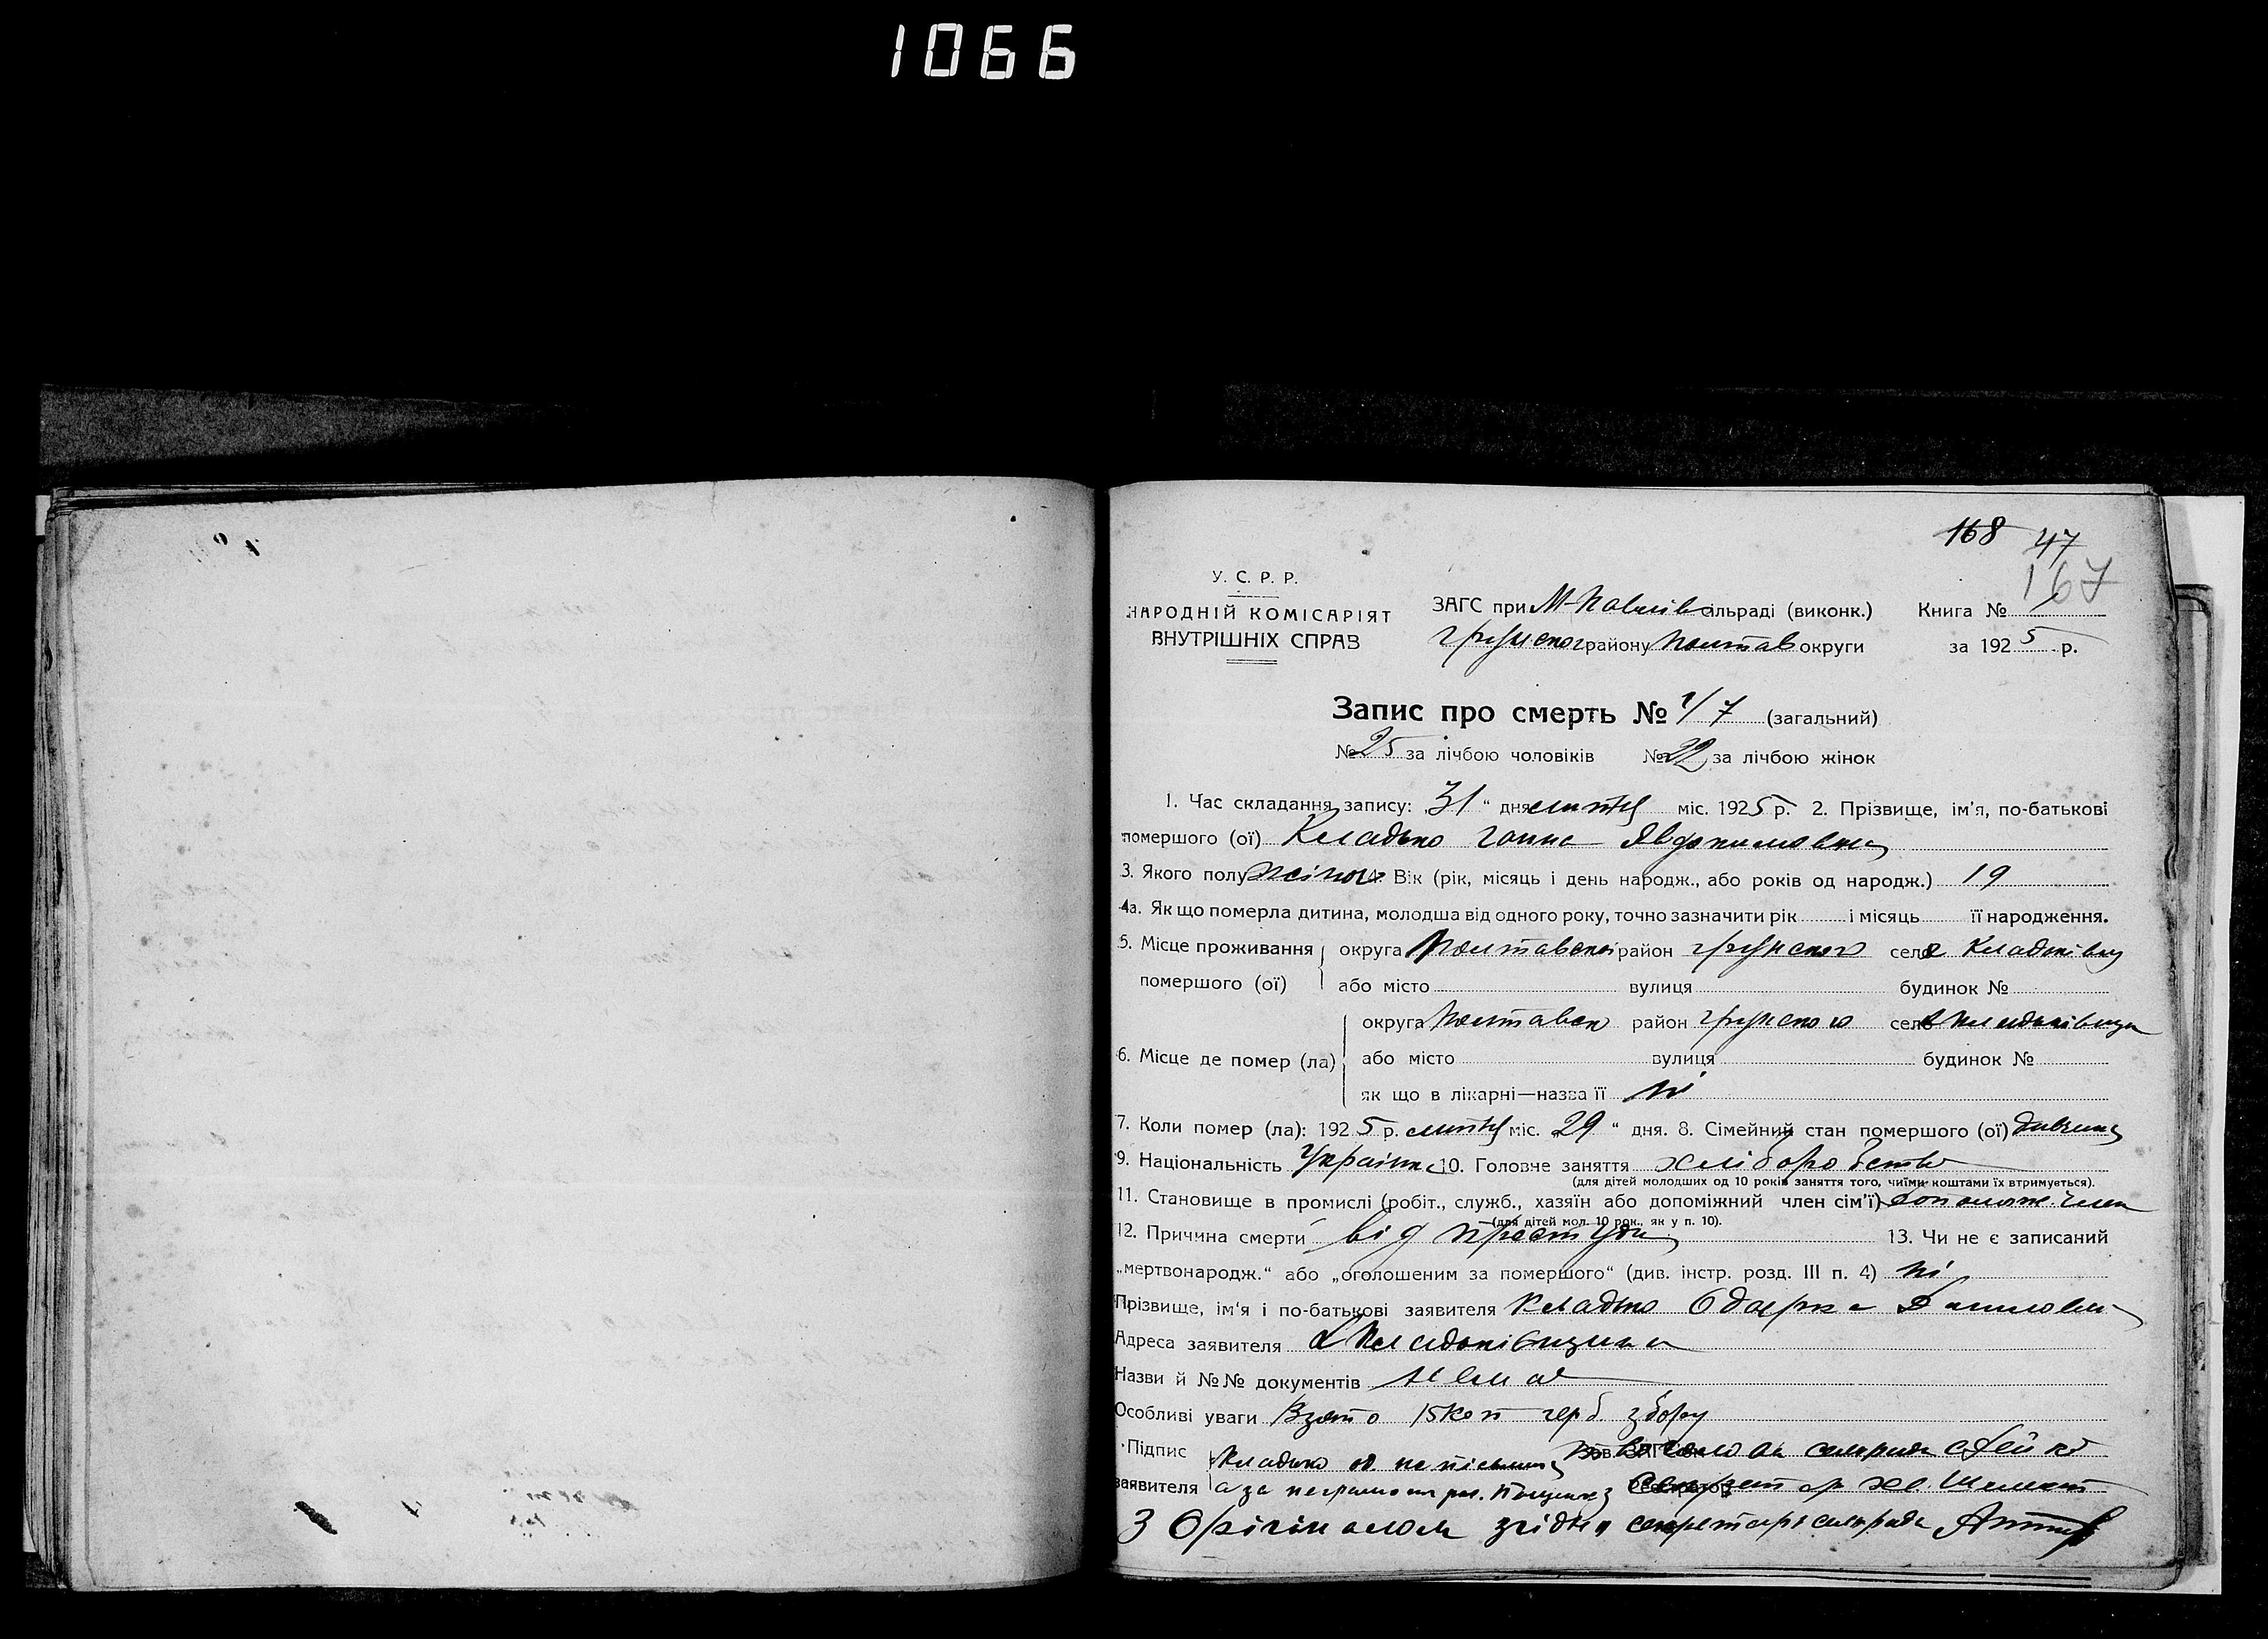 1066
168 47
167
У. С. Р. Р.
НАРОДНІЙ КОМІСАРІЯТ
ВНУТРІШНІХ СПРАВ
ЗАГС при М-Павлів сільраді (виконк.)
Грунског району Полтав округи
Книга №
за 1925 р.
Запис про смерть № 47 (загальний)
№ 25 за лічбою чоловіків № 22 за лічбою жінок
1. Час складання запису: „31“ дня липня міс. 1925 р. 2. Прізвище, ім'я, по-батькові
помершого (ої) Кладько Ганна Явдокимовна
3. Якого полу жіноч 4. Вік (рік, місяць і день народж., або років од народж.) 19
4а. Як що померла дитина, молодша від одного року, точно зазначити рік і місяць її народження.
5. Місце проживання помершого (ої) округа Полтавскої район Грунского село х Кладківку
або місто вулиця будинок №
6. Місце де помер (ла) округа Полтавск район Грунского село х Кладьківщи
або місто вулиця будинок №
як що в лікарні—назва її ні
7. Коли помер (ла): 1925 р. липня міс. 29 “ дня. 8. Сімейний стан помершого (ої) дивчина
9. Національність Україн 10. Головне заняття хліборобство
(для дітей молодших од 10 років заняття того, чиїми коштами їх втримується).
11. Становище в промислі (робіт., служб., хазяїн або допоміжний член сім'ї) допомож. член
(для дітей мол. 10 рок., як у п. 10).
12. Причина смерти від простуди 13. Чи не є записаний
„мертвонародж.“ або „оголошеним за помершого“ (див. інстр. розд. III п. 4) ні
Прізвище, ім'я і по-батькові заявителя Кладько Одарка Данилов
Адреса заявителя х Кладьківщина
Назви й №№ документів немає
Особливі уваги Взято 15 коп герб збору
Підпис заявителя Кладько од неписьмина голова сільради
а за неграмотн рос. секретар
З Орігіналом згідно секретарь сільради